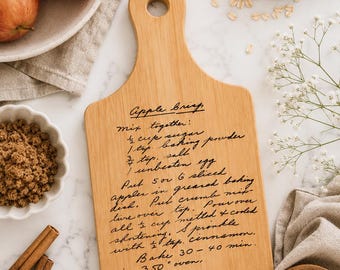 Apple Crisp
Mix together:
½ cup sugar
1 tsp baking powder
¾ tsp. salt
1 unbeaten egg
Put 5 or 6 sliced
apples in greased baking
dish. Put crumb mix-
ture over top. Pour over
all ⅓ cup melted & cooled
shortening; sprinkle
with ½ tsp. cinnamon.
Bake 30-40 min.
350° oven.